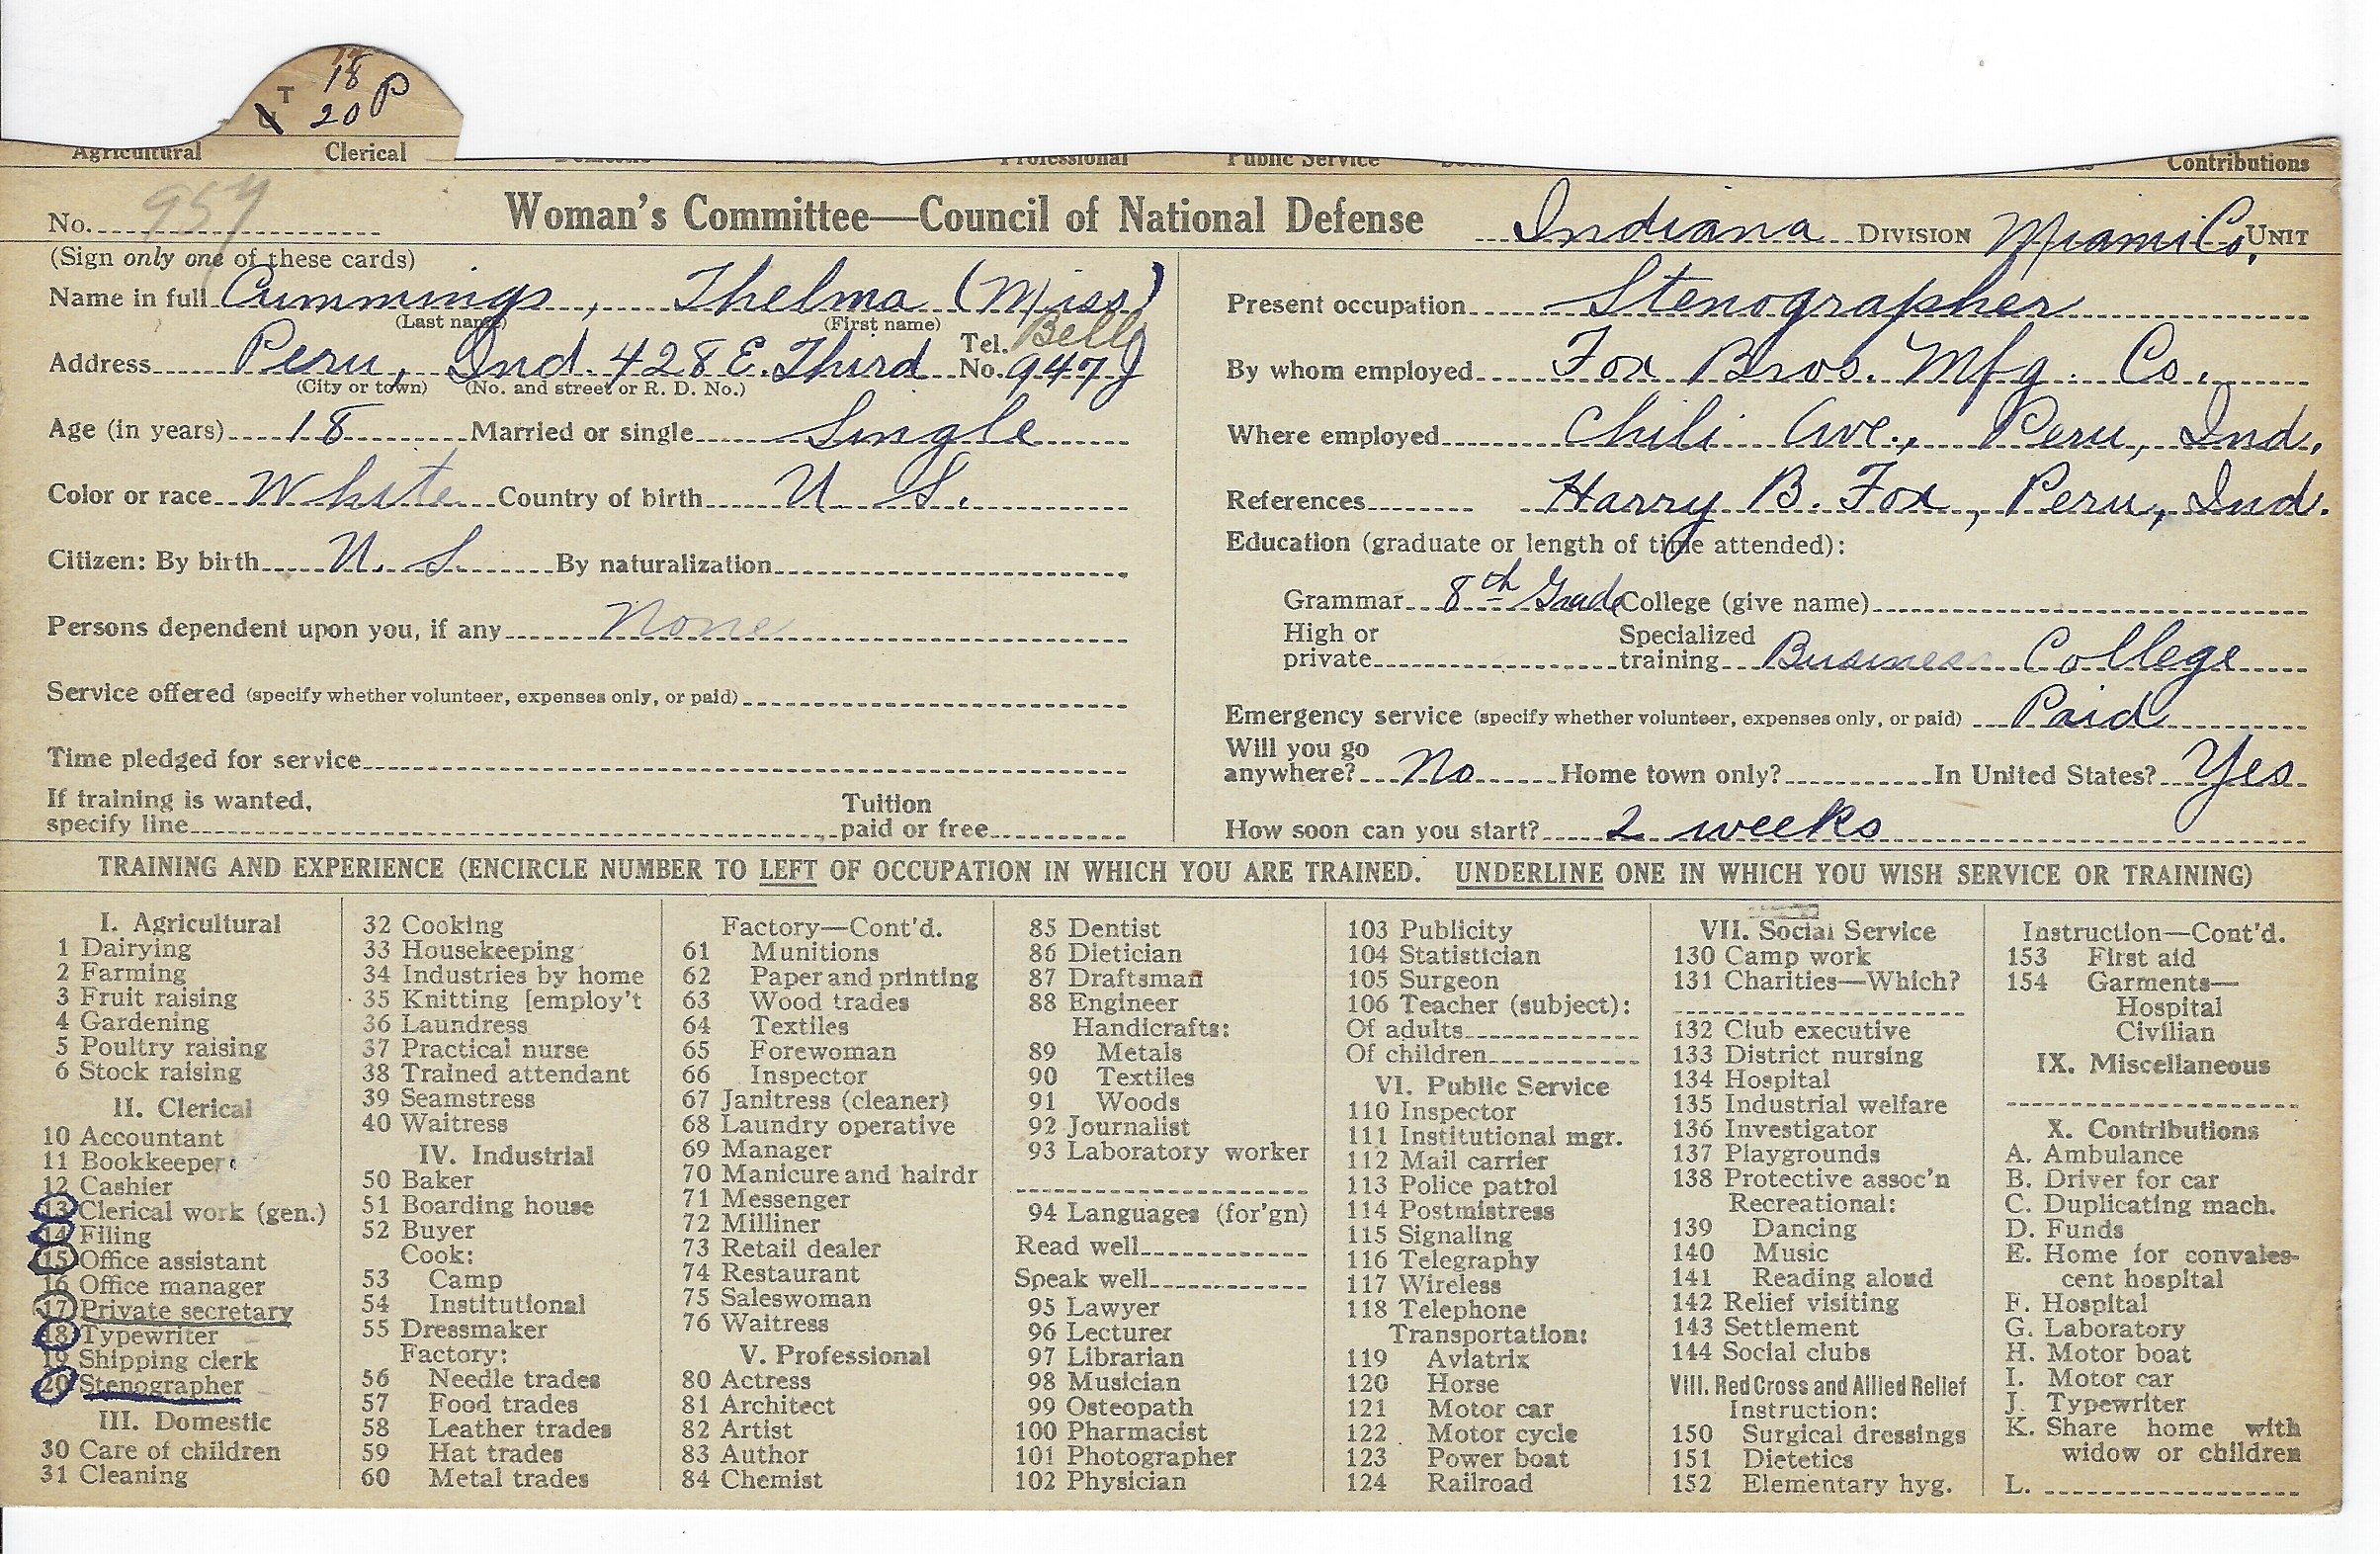 18
T 20 P
Agricultural Clerical Professional Public Service Contributions
No. 957
Woman's Committee—Council of National Defense Indiana DIVISION Miami Co. UNIT
(Sign only one of these cards)
Name in full Cummings, Thelma (Miss)
(Last name) (First name)
Address Peru, Ind. 428 E. Third Tel. No. Bell 947 J
(City or town) (No. and street or R. D. No.)
Age (in years) 18 Married or single Single
Color or race White Country of birth U. S.
Citizen: By birth U. S. By naturalization
Persons dependent upon you, if any None
Service offered (specify whether volunteer, expenses only, or paid)
Time pledged for service
If training is wanted, specify line Tuition paid or free
Present occupation Stenographer
By whom employed Fox Bros. Mfg. Co.
Where employed Chili Ave., Peru, Ind.
References Harry B. Fox, Peru, Ind.
Education (graduate or length of time attended):
Grammar 8th Grade College (give name)
High or private Specialized training Business College
Emergency service (specify whether volunteer, expenses only, or paid) Paid
Will you go anywhere? No Home town only? In United States? Yes
How soon can you start? 2 weeks
TRAINING AND EXPERIENCE (ENCIRCLE NUMBER TO LEFT OF OCCUPATION IN WHICH YOU ARE TRAINED. UNDERLINE ONE IN WHICH YOU WISH SERVICE OR TRAINING)
I. Agricultural
1 Dairying
2 Farming
3 Fruit raising
4 Gardening
5 Poultry raising
6 Stock raising
II. Clerical
10 Accountant
11 Bookkeeper
12 Cashier
13 Clerical work (gen.)
14 Filing
15 Office assistant
16 Office manager
17 Private secretary
18 Typewriter
19 Shipping clerk
20 Stenographer
III. Domestic
30 Care of children
31 Cleaning
32 Cooking
33 Housekeeping
34 Industries by home
35 Knitting [employ't
36 Laundress
37 Practical nurse
38 Trained attendant
39 Seamstress
40 Waitress
IV. Industrial
50 Baker
51 Boarding house
52 Buyer
Cook:
53 Camp
54 Institutional
55 Dressmaker
Factory:
56 Needle trades
57 Food trades
58 Leather trades
59 Hat trades
60 Metal trades
Factory—Cont'd.
61 Munitions
62 Paper and printing
63 Wood trades
64 Textiles
65 Forewoman
66 Inspector
67 Janitress (cleaner)
68 Laundry operative
69 Manager
70 Manicure and hairdr
71 Messenger
72 Milliner
73 Retail dealer
74 Restaurant
75 Saleswoman
76 Waitress
V. Professional
80 Actress
81 Architect
82 Artist
83 Author
84 Chemist
85 Dentist
86 Dietician
87 Draftsman
88 Engineer
Handicrafts:
89 Metals
90 Textiles
91 Woods
92 Journalist
93 Laboratory worker
94 Languages (for'gn)
Read well
Speak well
95 Lawyer
96 Lecturer
97 Librarian
98 Musician
99 Osteopath
100 Pharmacist
101 Photographer
102 Physician
103 Publicity
104 Statistician
105 Surgeon
106 Teacher (subject):
Of adults
Of children
VI. Public Service
110 Inspector
111 Institutional mgr.
112 Mail carrier
113 Police patrol
114 Postmistress
115 Signaling
116 Telegraphy
117 Wireless
118 Telephone
Transportation:
119 Aviatrix
120 Horse
121 Motor car
122 Motor cycle
123 Power boat
124 Railroad
VII. Social Service
130 Camp work
131 Charities—Which?
132 Club executive
133 District nursing
134 Hospital
135 Industrial welfare
136 Investigator
137 Playgrounds
138 Protective assoc'n
Recreational:
139 Dancing
140 Music
141 Reading aloud
142 Relief visiting
143 Settlement
144 Social clubs
VIII. Red Cross and Allied Relief
Instruction:
150 Surgical dressings
151 Dietetics
152 Elementary hyg.
Instruction—Cont'd.
153 First aid
154 Garments—
Hospital
Civilian
IX. Miscellaneous
X. Contributions
A. Ambulance
B. Driver for car
C. Duplicating mach.
D. Funds
E. Home for convales-
cent hospital
F. Hospital
G. Laboratory
H. Motor boat
I. Motor car
J. Typewriter
K. Share home with
widow or children
L.